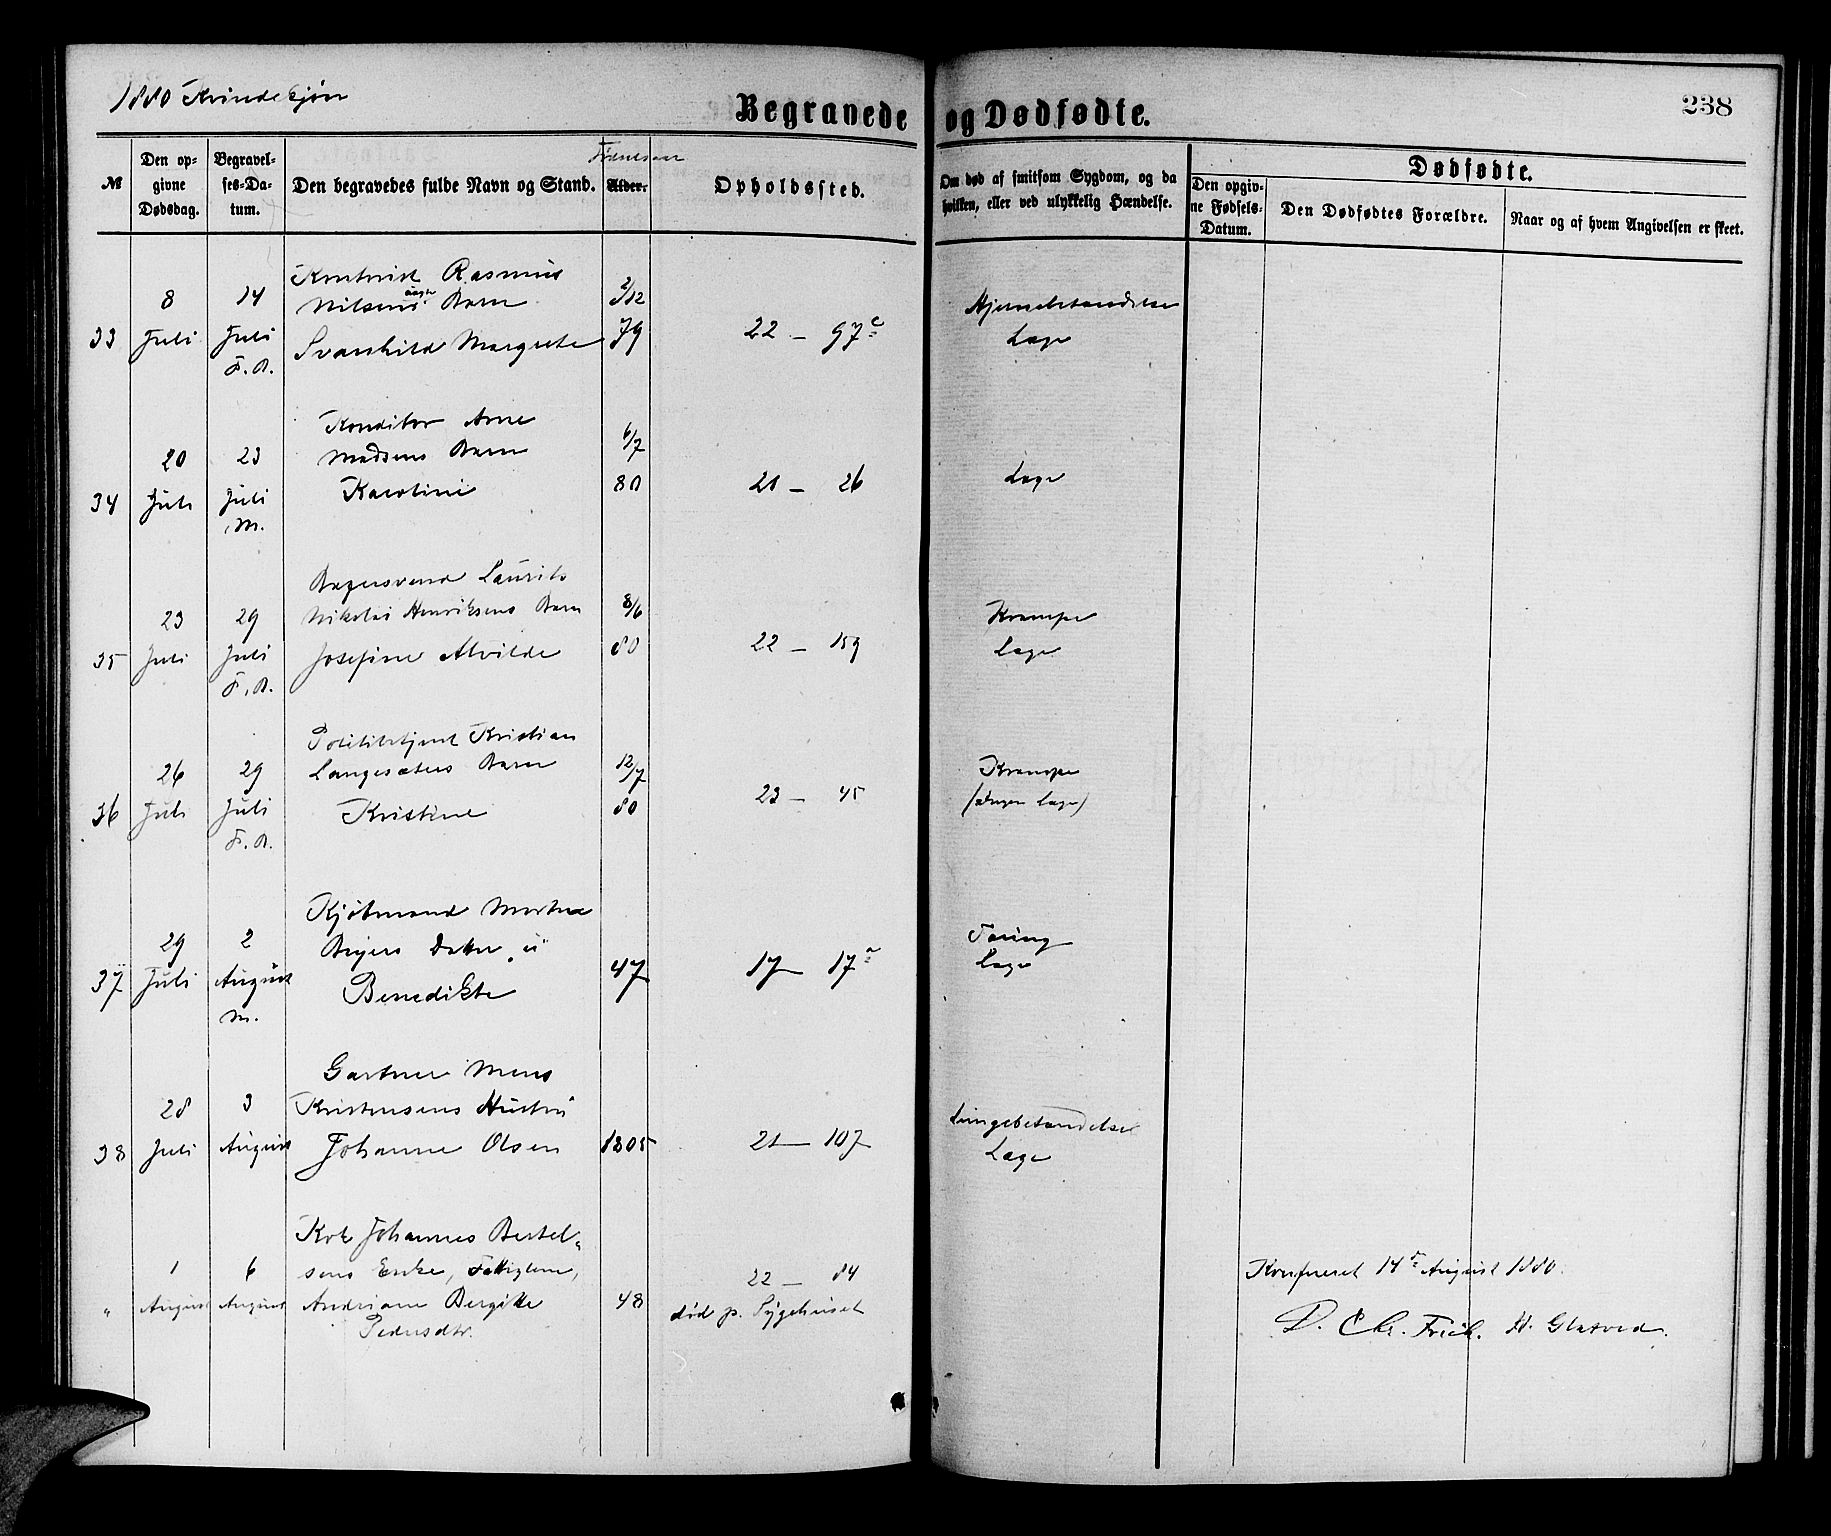 1880 Kvindekjøn
Begravede og Dødfødte.
238
№
Den opgivne Dødsdag.
Begravelses-Datum.
Den begravedes fulde Navn og Stand.
Fødselsaar
Alder.
Opholdssted.
Om død af smitsom Sygdom, og da hvilken, eller ved ulykkelig Hændelse.
Dødfødte.
Den opgivne Fødsels-Datum.
Den Dødfødtes Forældre.
Naar og af hvem Angivelsen er skeet.
33
8 Juli
14 Juli F. B.
Rasmus
Nilsens Barn
Svanhild Margrete
2/12 79
22 – 97
Hjernebetændelse
Læge
34
20 Juli
23 Juli M.
Konditor Arne
Madsens Barn
Karoline
6/7 80
21 – 26
Læge
35
23 Juli
29 Juli F. B.
Bagersvend Laurits
Nikolai Henriksens Barn
Josefine Alvilde
8/6 80
22 – 159
Krampe
Læge
36
26 Juli
29 Juli F. B.
Politibetjent Kristian
Langesæters Barn
Kristine
12/7 80
23 – 45
Krampe
(Ingen Læge)
37
29 Juli
2 August M.
Kjøbmand
Beyers Datter
Benedikte
47
17 – 17 a
Tæring
Læge
38
28 Juli
3 August
Gartner Mons
Kristensens Hustru
Johanne Olsen
1805
21 – 107
Lungebetændelse
Læge
"
1 August
6 August
Johannes Bertel-
sens Enke, Fattiglem,
Andriane Bergitte
Pedersdtr.
48
22 – 84
død p. Sygehuset
Konfereret 14de August 1880.
D. Chr. Frich. H. Glatved.